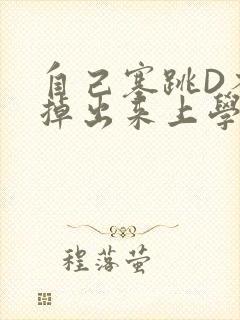 自己塞跳D不
掉出来上學
程落萤